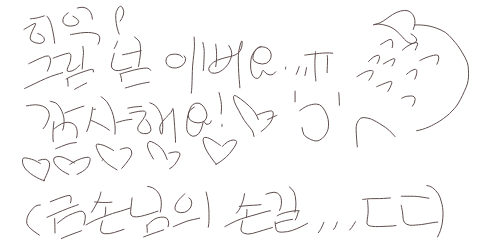 히익!
그림 넘 이뻐요...ㅠ
감사해요! ♡ 'ㅇ'
♡♡♡♡♡
(금손님의 손길,,,ㄷㄷ)